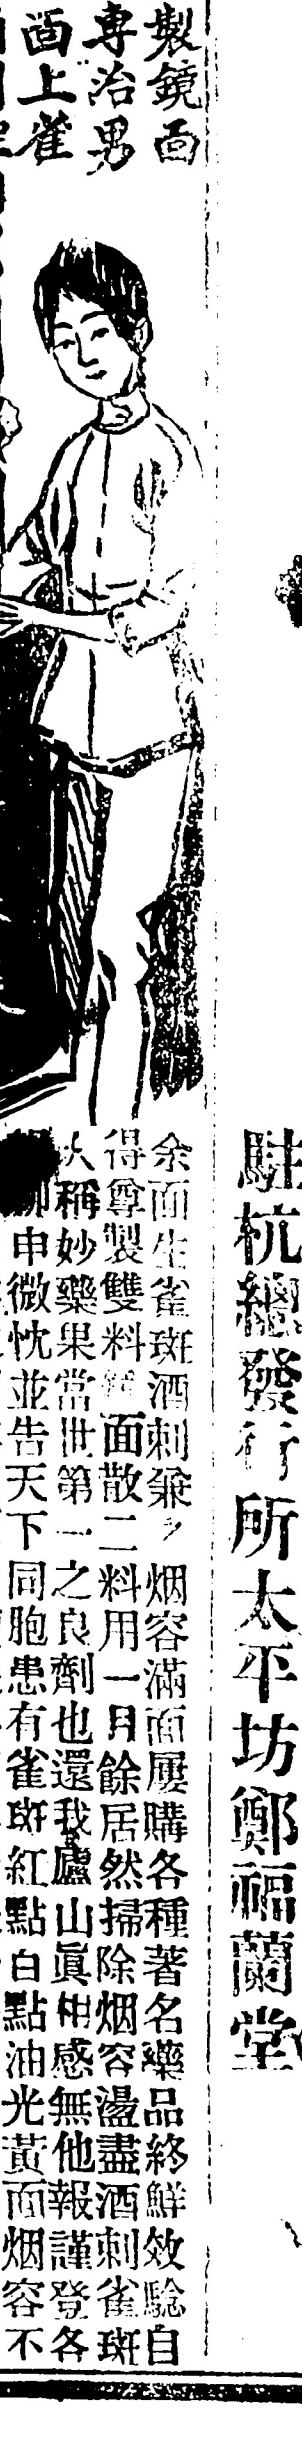 駐杭總發行所太平坊鄭福蘭堂
製鏡面
專治男
面上雀
余面生雀斑酒刺兼 烟容滿面屢購各種著名藥品終鮮效騐自
得尊製雙料 面散二料用一月餘居然掃除烟容盪盡酒刺雀斑
人稱妙藥果當世第一之良劑也還我廬山眞相感無他報謹登各
申微忱並告天下同胞患有雀斑紅點白點油光黃面烟容不